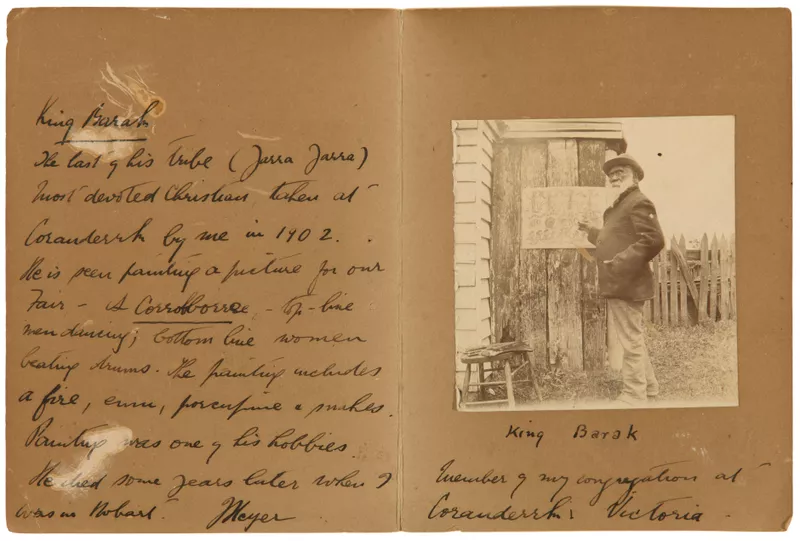 King Barak
The last of his tribe (Jarra Jarra)
Most devoted Christian, taken at
Coranderrk by me in 1902.
He is seen painting a picture for our
Fair – A Corrobborree – top-line
men dancing; bottom line women
beating drums. The painting includes
a fire, emu, porcupine & snakes.
Painting was one of his hobbies.
He died some years later when I
was in Hobart. JMeyer
King Barak
Member of my congregation at
Coranderrk: Victoria.